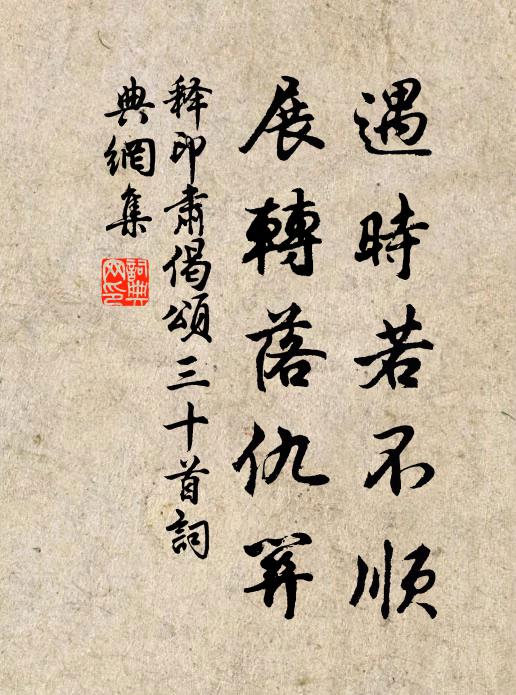 遇時若不順
展轉落仇羿
释印肃偈頌三十首詞
典網集
詞典
网印